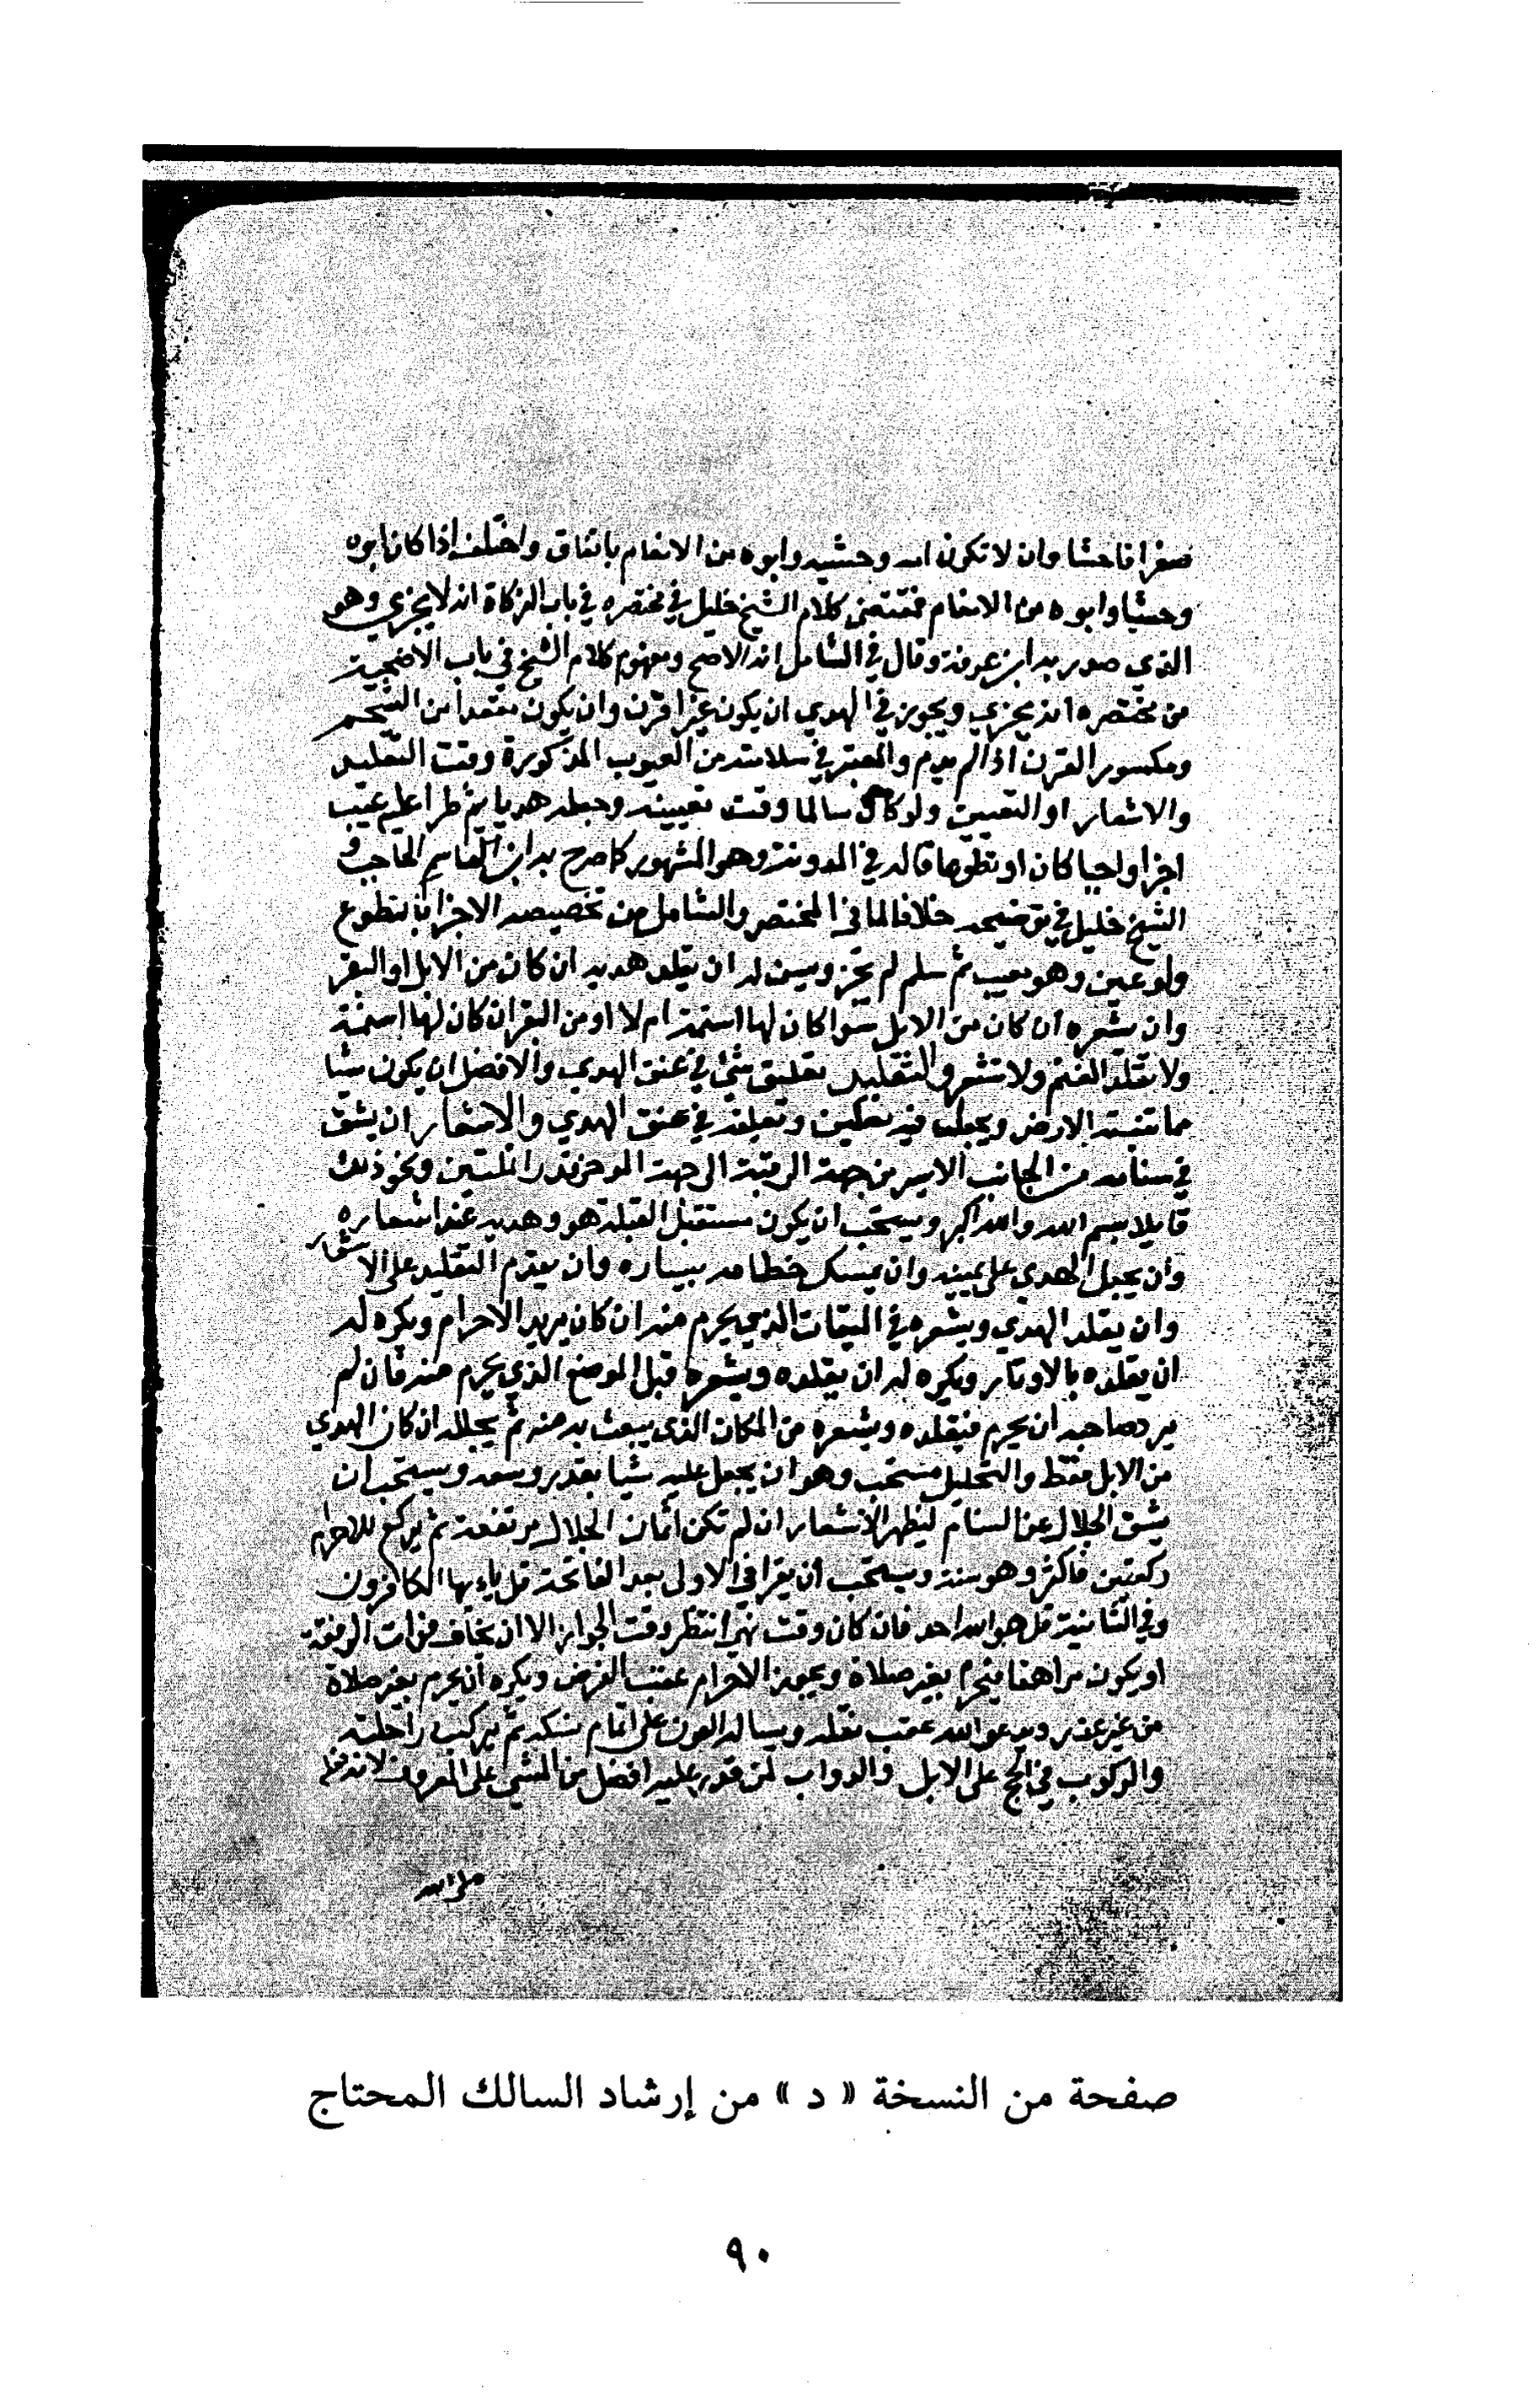 صغرا فاحشا وان لا تكون امه وحشيه وابوه من الانعام باتفاق واختلف اذا كان ابوه
وحشيا وابوه من الانعام فمقتضى كلام الشيخ خليل في مختصره في باب الزكاة انه لا يجزي وهو
الذي صدر به ابن عرفة وقال في الشامل انه الاصح ومفهوم كلام الشيخ في باب الاضحية
من مختصره انه يجزي ويجوز في الهدي ان يكون غير اقرن وان يكون مقعدا من الشحم
ومكسور القرن اذا لم يدم والمعتبر في سلامته من العيوب المذكورة وقت التقليد
والاشعار او التعيين ولو كان سالما وقت تعيينه وجعله هديا ثم طرا عليه عيب
اجزا واجبا كان او تطوعا قاله في المدونة وهو المشهور كما صرح به ابن الحاجب و
الشيخ خليل في توضيحه خلافا لما في المختصر والشامل من تخصيصه الاجزا بالتطوع
ولو عين وهو معيب ثم سلم لم يجز ويسن له ان يقلد هديه ان كان من الابل او البقر
وان يشعره ان كان من الابل سوا كان لها اسنمة ام لا او من البقر ان كان لها اسنمة
ولا تقلد الغنم ولا تشعر والتقليد تعليق شئ في عنق الهدي والافضل ان يكون شيا
مما تنبته الارض ويجعل فيه نعلين وتعلقه في عنق الهدي والاشعار ان يشق
في سنامه من الجانب الايسر من جهة الرقبة الى جهة الموخر قدر انملتين ونحو ذلك
قايلا بسم الله والله اكبر ويستحب ان يكون مستقبل القبلة هو وهديه عند اشعاره
وان يجعل الهدي على يمينه وان يمسك خطامه بيساره وان يقدم التقليد على الاشعار
وان يقلد الهدي ويشعره في الميقات الذي يحرم منه ان كان يريد الاحرام ويكره له
ان يقلده بالاوتار ويكره له ان يقلده ويشعره قبل الموضع الذي يحرم منه فان لم
يرد صاحبه ان يحرم فيقلده ويشعره من المكان الذي يبعث به منه ثم يجلله ان كان الهدي
من الابل فقط والتجليل مستحب وهو ان يجعل عليه شيا بقدر وسعه ويستحب ان
يشق الجلال عن السنام ليظهر الاشعار ان لم تكن اثمان الجلال مرتفعة ثم يركع للاحرام
ركعتين فاكثر وهو سنة ويستحب ان يقرا في الاولى بعد الفاتحة قل ياءيها الكافرون
وفي الثانية قل هو الله احد فان كان وقت نهي انتظر وقت الجواز الا ان يخاف فوات الرفقة
او يكون مراهقا فيحرم بغير صلاة ويجوز الاحرام عقب الفرض ويكره ان يحرم بغير صلاة
من غير عذر ويدعو الله عقب تنفله ويساله العون على اتمام نسكه ثم يركب راحلته
والركوب في الحج على الابل والدواب لمن قدر عليه افضل من المشي على المعروف لانه فعله
صلى الله
صفحة من النسخة « د » من إرشاد السالك المحتاج
٩٠